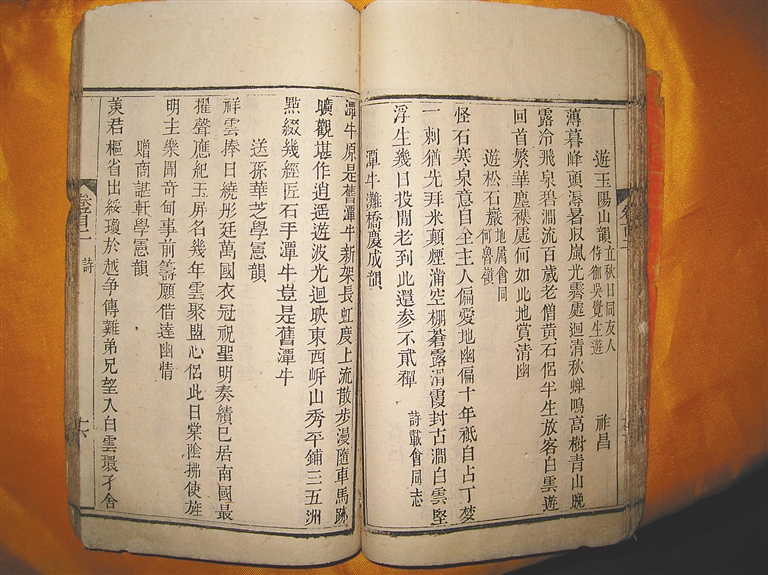 遊玉陽山韻 立秋日同友人侍伽吳覺生遊 祚昌
薄暮峰頭溽暑收嵐光霽處迴清秋蟬鳴高樹青山晚
露冷飛泉碧澗流百歲老僧黃石侶半生放客白雲遊
回首繁華塵襟處何如此地賞清幽
遊松石巖 地屬會同何魯嶺
怪石寒泉意自全主人偏愛地幽偏十年祗自占丁夢
一刺猶先拜米顛煙滿空棚蒼露滑霞封古澗白雲堅
浮生幾日投閒老到此還參不貳禪 詩載會同志
潭牛灘橋慶成韻
潭牛原是舊潭牛新架長虹慶上流散步漫隨車馬跡
曠觀堪作逍遥遊波光迴映東西㟁山秀平鋪三五洲
㸃綴幾經匠石手潭牛豈是舊潭牛
送孫華芝學憲韻
祥雲捧日繞彤廷萬國衣冠祝聖明奏績已居南國最
擢聲應紀玉屏名幾年雲聚盟心侶此日棠陰拂使旌
明主樂聞竒甸事前籌願借達幽情
贈商諶軒學憲韻
羨君樞省出綏瓊於越争傳難弟兄望入白雲環孑舍
卷二 詩